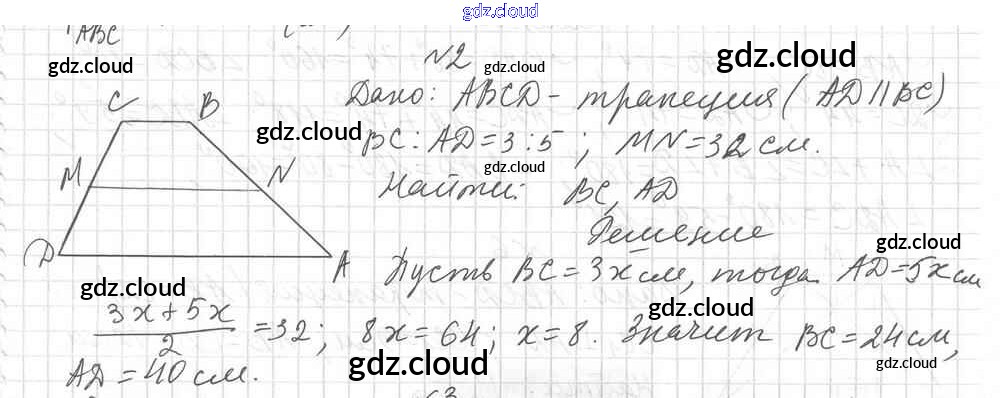 gdz.cloud
ABC
gdz.cloud
N2
gdz.cloud
gdz.cloud
Дано: ABCD - трапеция (AD || BC)
gdz.cloud
BC : AD = 3 : 5 ; MN = 32 см.
gdz.cloud
Найти: BC, AD
Решение
gdz.cloud
C B
M N
D A
Пусть BC = 3x см, тогда AD = 5x см
gdz.cloud
gdz.cloud
3x + 5x / 2 = 32; 8x = 64; x = 8. Значит BC = 24 см,
gdz.cloud
gdz.cloud
AD = 40 см.